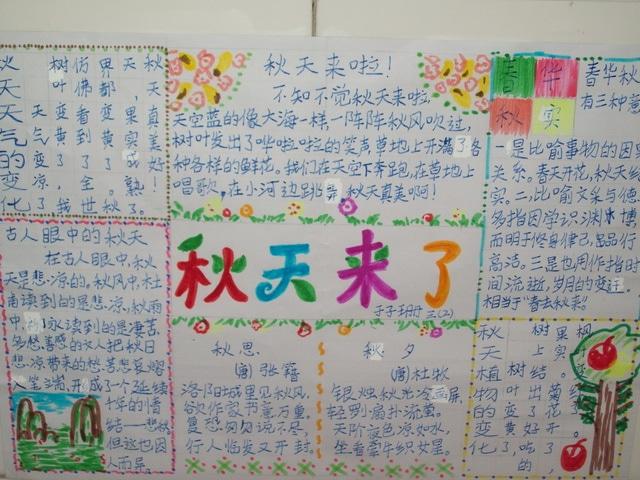 秋天天气的变化
天气变凉了
树叶变黄了,我
仿佛看到了全世
界都变黄。秋
天,果实成熟了。
秋天真美好!
秋天来啦!
不知不觉秋天来啦,
天空蓝的像大海一样,一阵阵秋风吹过,
树叶发出了哗啦啦的笑声草地上开满了各
种各样的鲜花。我们在天空下奔跑,在草地上
唱歌,在小河边跳舞,秋天真美啊!
春华
秋实
春华秋
有三种
一是比喻事物的因果
关系。春天开花,秋天结
实。二,比喻文采与德
多指因学识渊博
而明于修身律己,品行
高洁。三是也用作指时
间流逝,岁月的变迁,
相当于"春去秋来"。
古人眼中的秋天
在古人眼中,秋
天是悲凉的。秋风中,杜
甫读到的是悲凉,秋雨
中,永读到的是凄苦
多愁善感的文人把秋日
悲凉带来的愁苦悲哀
人笔端,形成了一个延续
千年的情
结——悲秋
但这也因
人而异。
秋天来了
于子珊 三(2)
秋思
(唐)张籍
洛阳城里见秋风,
欲作家书意万重。
复恐匆匆说不尽,
行人临发又开封。
秋夕
(唐)杜牧
银烛秋光冷画屏,
轻罗小扇扑流萤。
天阶夜色凉如水,
坐看牵牛织女星。
秋天植物的变化